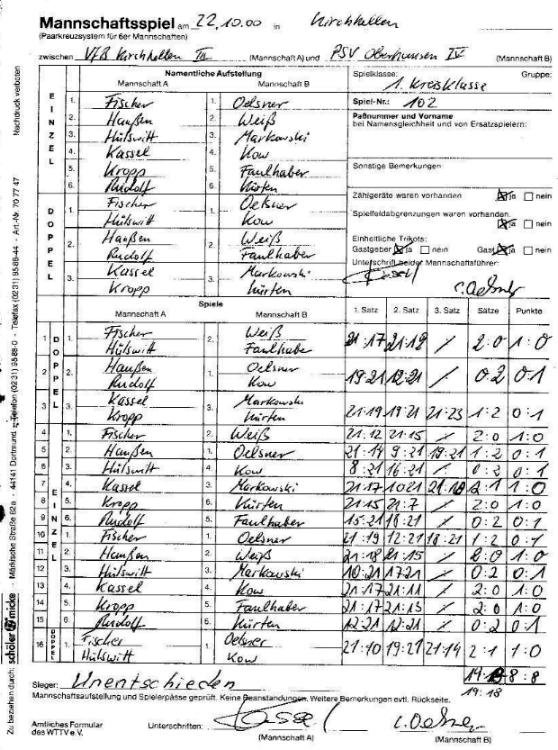 Mannschaftsspiel am 22.10.00 in Kirchhellen
(Paarkreuzsystem für 6er Mannschaften)
zwischen VfB Kirchhellen III (Mannschaft A) und PSV Oberhausen IV (Mannschaft B)
Namentliche Aufstellung
Mannschaft A Mannschaft B
EINZEL
1. Fischer 1. Oelsner
2. Haußen 2. Weiß
3. Hülswitt 3. Markowski
4. Kassel 4. Kow
5. Kropp 5. Faulhaber
6. Rudolf 6. Kürten
DOPPEL
1. Fischer 1. Oelsner
Hülswitt Kow
2. Haußen 2. Weiß
Rudolf Faulhaber
3. Kassel 3. Markowski
Kropp Kürten
Spielklasse: Gruppe:
1. Kreisklasse
Spiel-Nr.: 102
Paßnummer und Vorname
bei Namensgleichheit und von Ersatzspielern:
Sonstige Bemerkungen
Zählgeräte waren vorhanden ja nein
Spielfeldabgrenzungen waren vorhanden
ja nein
Einheitliche Trikots:
Gastgeber ja nein Gast ja nein
Unterschrift beider Mannschaftsführer:
C. Oelsner
Spiele
Mannschaft A Mannschaft B 1. Satz 2. Satz 3. Satz Sätze Punkte
DOPPEL
1 1. Fischer 2. Weiß
Hülswitt Faulhaber 21:17 21:19 2:0 1:0
2 2. Haußen 1. Oelsner
Rudolf Kow 19:21 12:21 0:2 0:1
3 3. Kassel 3. Markowski
Kropp Kürten 21:19 19:21 21:23 1:2 0:1
EINZEL
4 1. Fischer 2. Weiß 21:12 21:15 / 2:0 1:0
5 2. Haußen 1. Oelsner 21:14 9:21 19:21 1:2 0:1
6 3. Hülswitt 4. Kow 8:21 16:21 / 0:2 0:1
7 4. Kassel 3. Markowski 21:17 10:21 21:18 2:1 1:0
8 5. Kropp 6. Kürten 21:15 21:7 / 2:0 1:0
9 6. Rudolf 5. Faulhaber 15:21 18:21 / 0:2 0:1
10 1. Fischer 1. Oelsner 21:19 12:21 18:21 1:2 0:1
11 2. Haußen 2. Weiß 21:18 21:15 / 2:0 1:0
12 3. Hülswitt 3. Markowski 10:21 17:21 / 0:2 0:1
13 4. Kassel 4. Kow 21:17 21:11 / 2:0 1:0
14 5. Kropp 5. Faulhaber 21:17 21:15 / 2:0 1:0
15 6. Rudolf 6. Kürten 12:21 12:21 / 0:2 0:1
DOPPEL
16 1. Fischer 1. Oelsner
Hülswitt Kow 21:10 19:21 21:14 2:1 1:0
8:8
Sieger: Unentschieden 19:18
Mannschaftsaufstellung und Spielerpässe geprüft. Keine Beanstandungen. Weitere Bemerkungen evtl. Rückseite.
Amtliches Formular
des WTTV e.V.
Unterschriften: Kassel C. Oelsner
(Mannschaft A) (Mannschaft B)
Zu beziehen durch: schöler micke · Märkische Straße 62a · 44141 Dortmund · Telefon (0231) 9588-0 · Telefax (0231) 9588-44 · Art.-Nr. 70 77 47 Nachdruck verboten